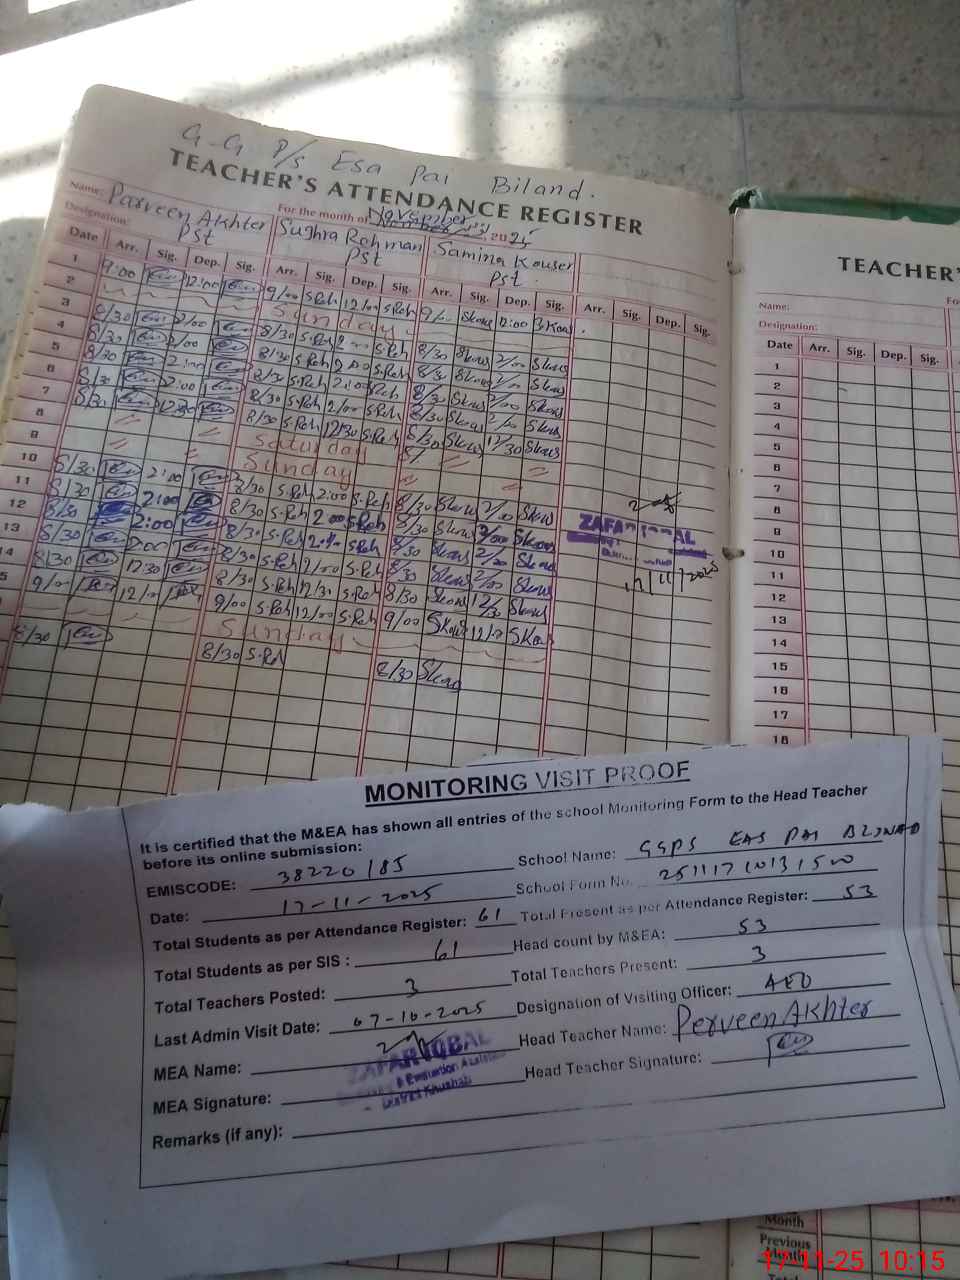 G.G P/s Esa Pai Biland.
TEACHER'S ATTENDANCE REGISTER
For the month of November, 2025
Name: Parveen Akhter Sughra Rehman Samina Kouser
Designation: PST PST PST.
Date Arr. Sig. Dep. Sig. Arr. Sig. Dep. Sig. Arr. Sig. Dep. Sig. Arr. Sig. Dep. Sig.
1 9:00 12:00 9/00 S.Reh 12/00 S.Reh 9/00 Skous 12:00 Skous
2 Sunday
3 8/30 2/00 8/30 S.Reh 2:00 S.Reh 8/30 Skous 2/00 Skous
4 8/30 2/00 8/30 S.Reh 2:00 S.Reh 8/30 Skous 2/00 Skous
5 8/30 2:00 8/30 S.Reh 2:00 S.Reh 8/30 Skous 2/00 Skous
6 8/30 2:00 8/30 S.Reh 2/00 S.Reh 8/30 Skous 2/00 Skous
7 8/30 12:30 8/30 S.Reh 12/30 S.Reh 8/30 Skous 12/30 Skous
8 Saturday
9 Sunday
10 8/30 2:00 8/30 S.Reh 2:00 S.Reh 8/30 Skous 2/00 Skous
11 8/30 2:00 8/30 S.Reh 2:00 S.Reh 8/30 Skous 2/00 Skous
12 8/30 2:00 8/30 S.Reh 2:00 S.Reh 8/30 Skous 2/00 Skous
13 8/30 2:00 8/30 S.Reh 2/00 S.Reh 8/30 Skous 2/00 Skous
14 8/30 12:30 8/30 S.Reh 12/30 S.Reh 8/30 Skous 12/30 Skous
9/00 12/00 9/00 S.Reh 12/00 S.Reh 9/00 Skous 12/00 Skous
Sunday
8/30 8/30 S.Reh 8/30 Skous
ZAFAR IQBAL
17/11/2025
TEACHER'
Name:
Designation:
Date Arr. Sig. Dep. Sig.
1
2
3
4
5
6
7
8
9
10
11
12
13
14
15
16
17
MONITORING VISIT PROOF
It is certified that the M&EA has shown all entries of the school Monitoring Form to the Head Teacher
before its online submission:
EMISCODE: 38220185 School Name: GGPS EAS PAI BLINAD
Date: 17-11-2025 School Form No. 25111710131500
Total Students as per Attendance Register: 61 Total Present as per Attendance Register: 53
Total Students as per SIS : 61 Head count by M&EA: 53
Total Teachers Posted: 3 Total Teachers Present: 3
Last Admin Visit Date: 07-10-2025 Designation of Visiting Officer: AEO
MEA Name: Head Teacher Name: Perveen Akhter
ZAFAR IQBAL
& Evaluation Assistant
District Khushab
MEA Signature: Head Teacher Signature:
Remarks (if any):
Month
Previous
Month
17-11-25 10:15